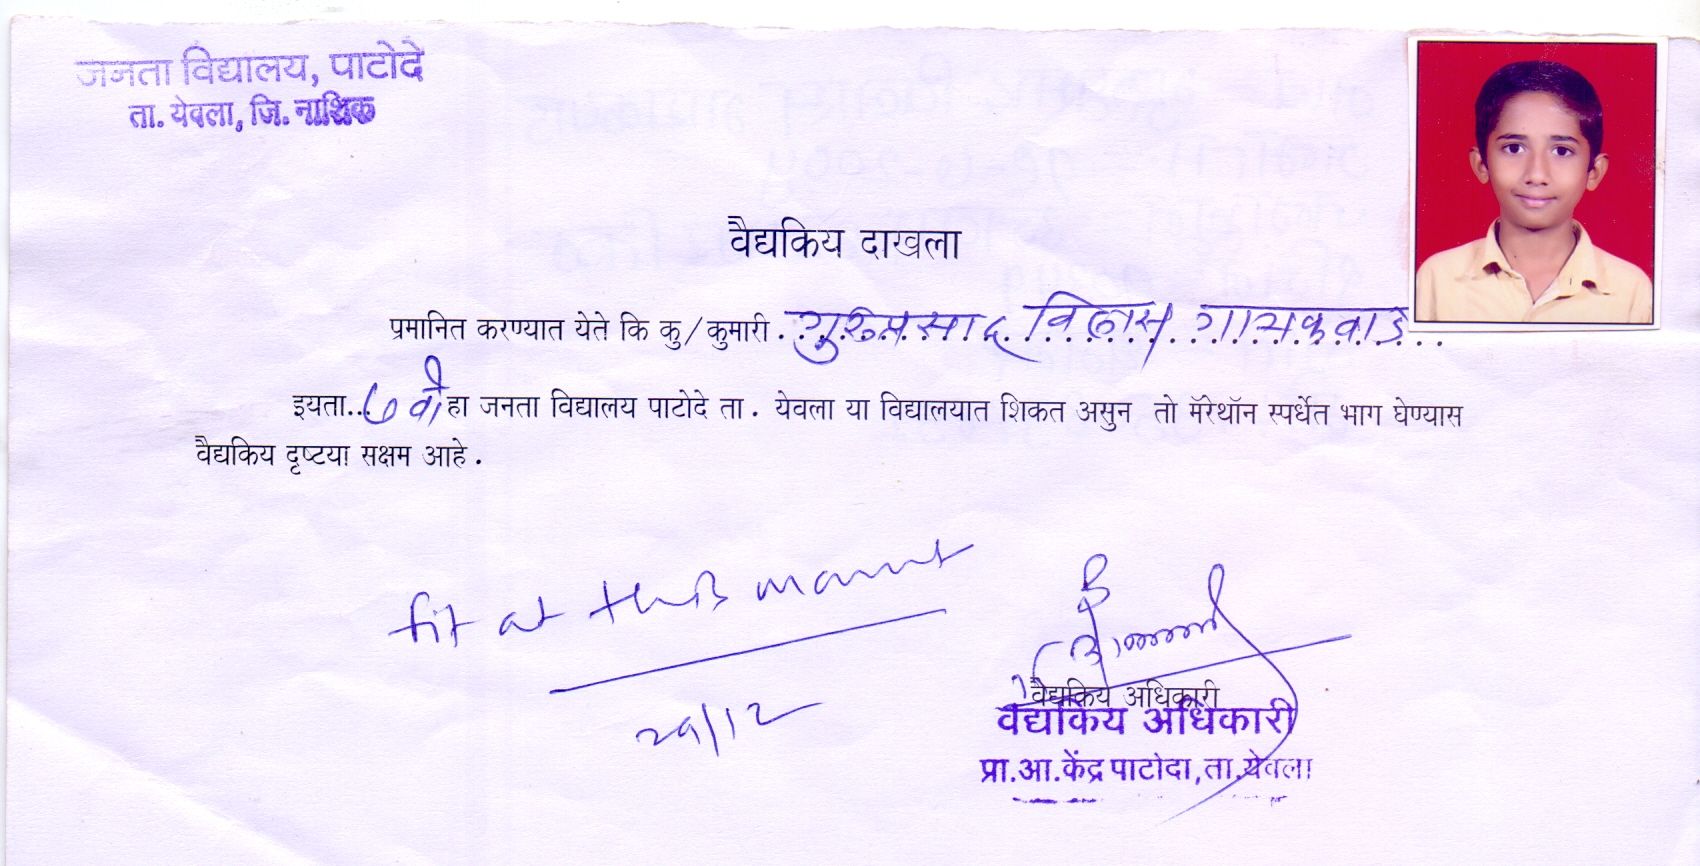 जनता विद्यालय, पाटोदे
ता. येवला, जि. नाशिक
वैद्यकिय दाखला
प्रमानित करण्यात येते कि कु/कुमारी . गुरुप्रसाद विलास गायकवाड
इयता...७ वी हा जनता विद्यालय पाटोदे ता. येवला या विद्यालयात शिकत असुन तो मॅरेथॉन स्पर्धेत भाग घेण्यास
वैद्यकिय दृष्टया सक्षम आहे.
fit at this moment
29/12
वैद्यकिय अधिकारी
वैद्यकिय अधिकारी
प्रा.आ.केंद्र पाटोदा, ता.येवला